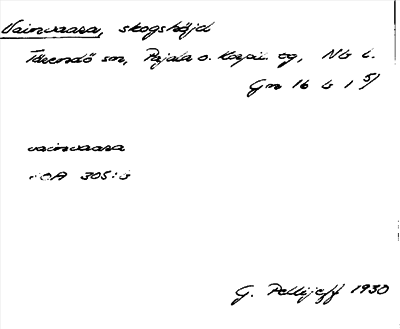 Vainvaara, skogshöjd
Tärendö sn, Pajala o. Korpil. tg, Nb l.
Gm 16 b 1 5)
vainvaara
OA 305:
G. Pellijeff 1930